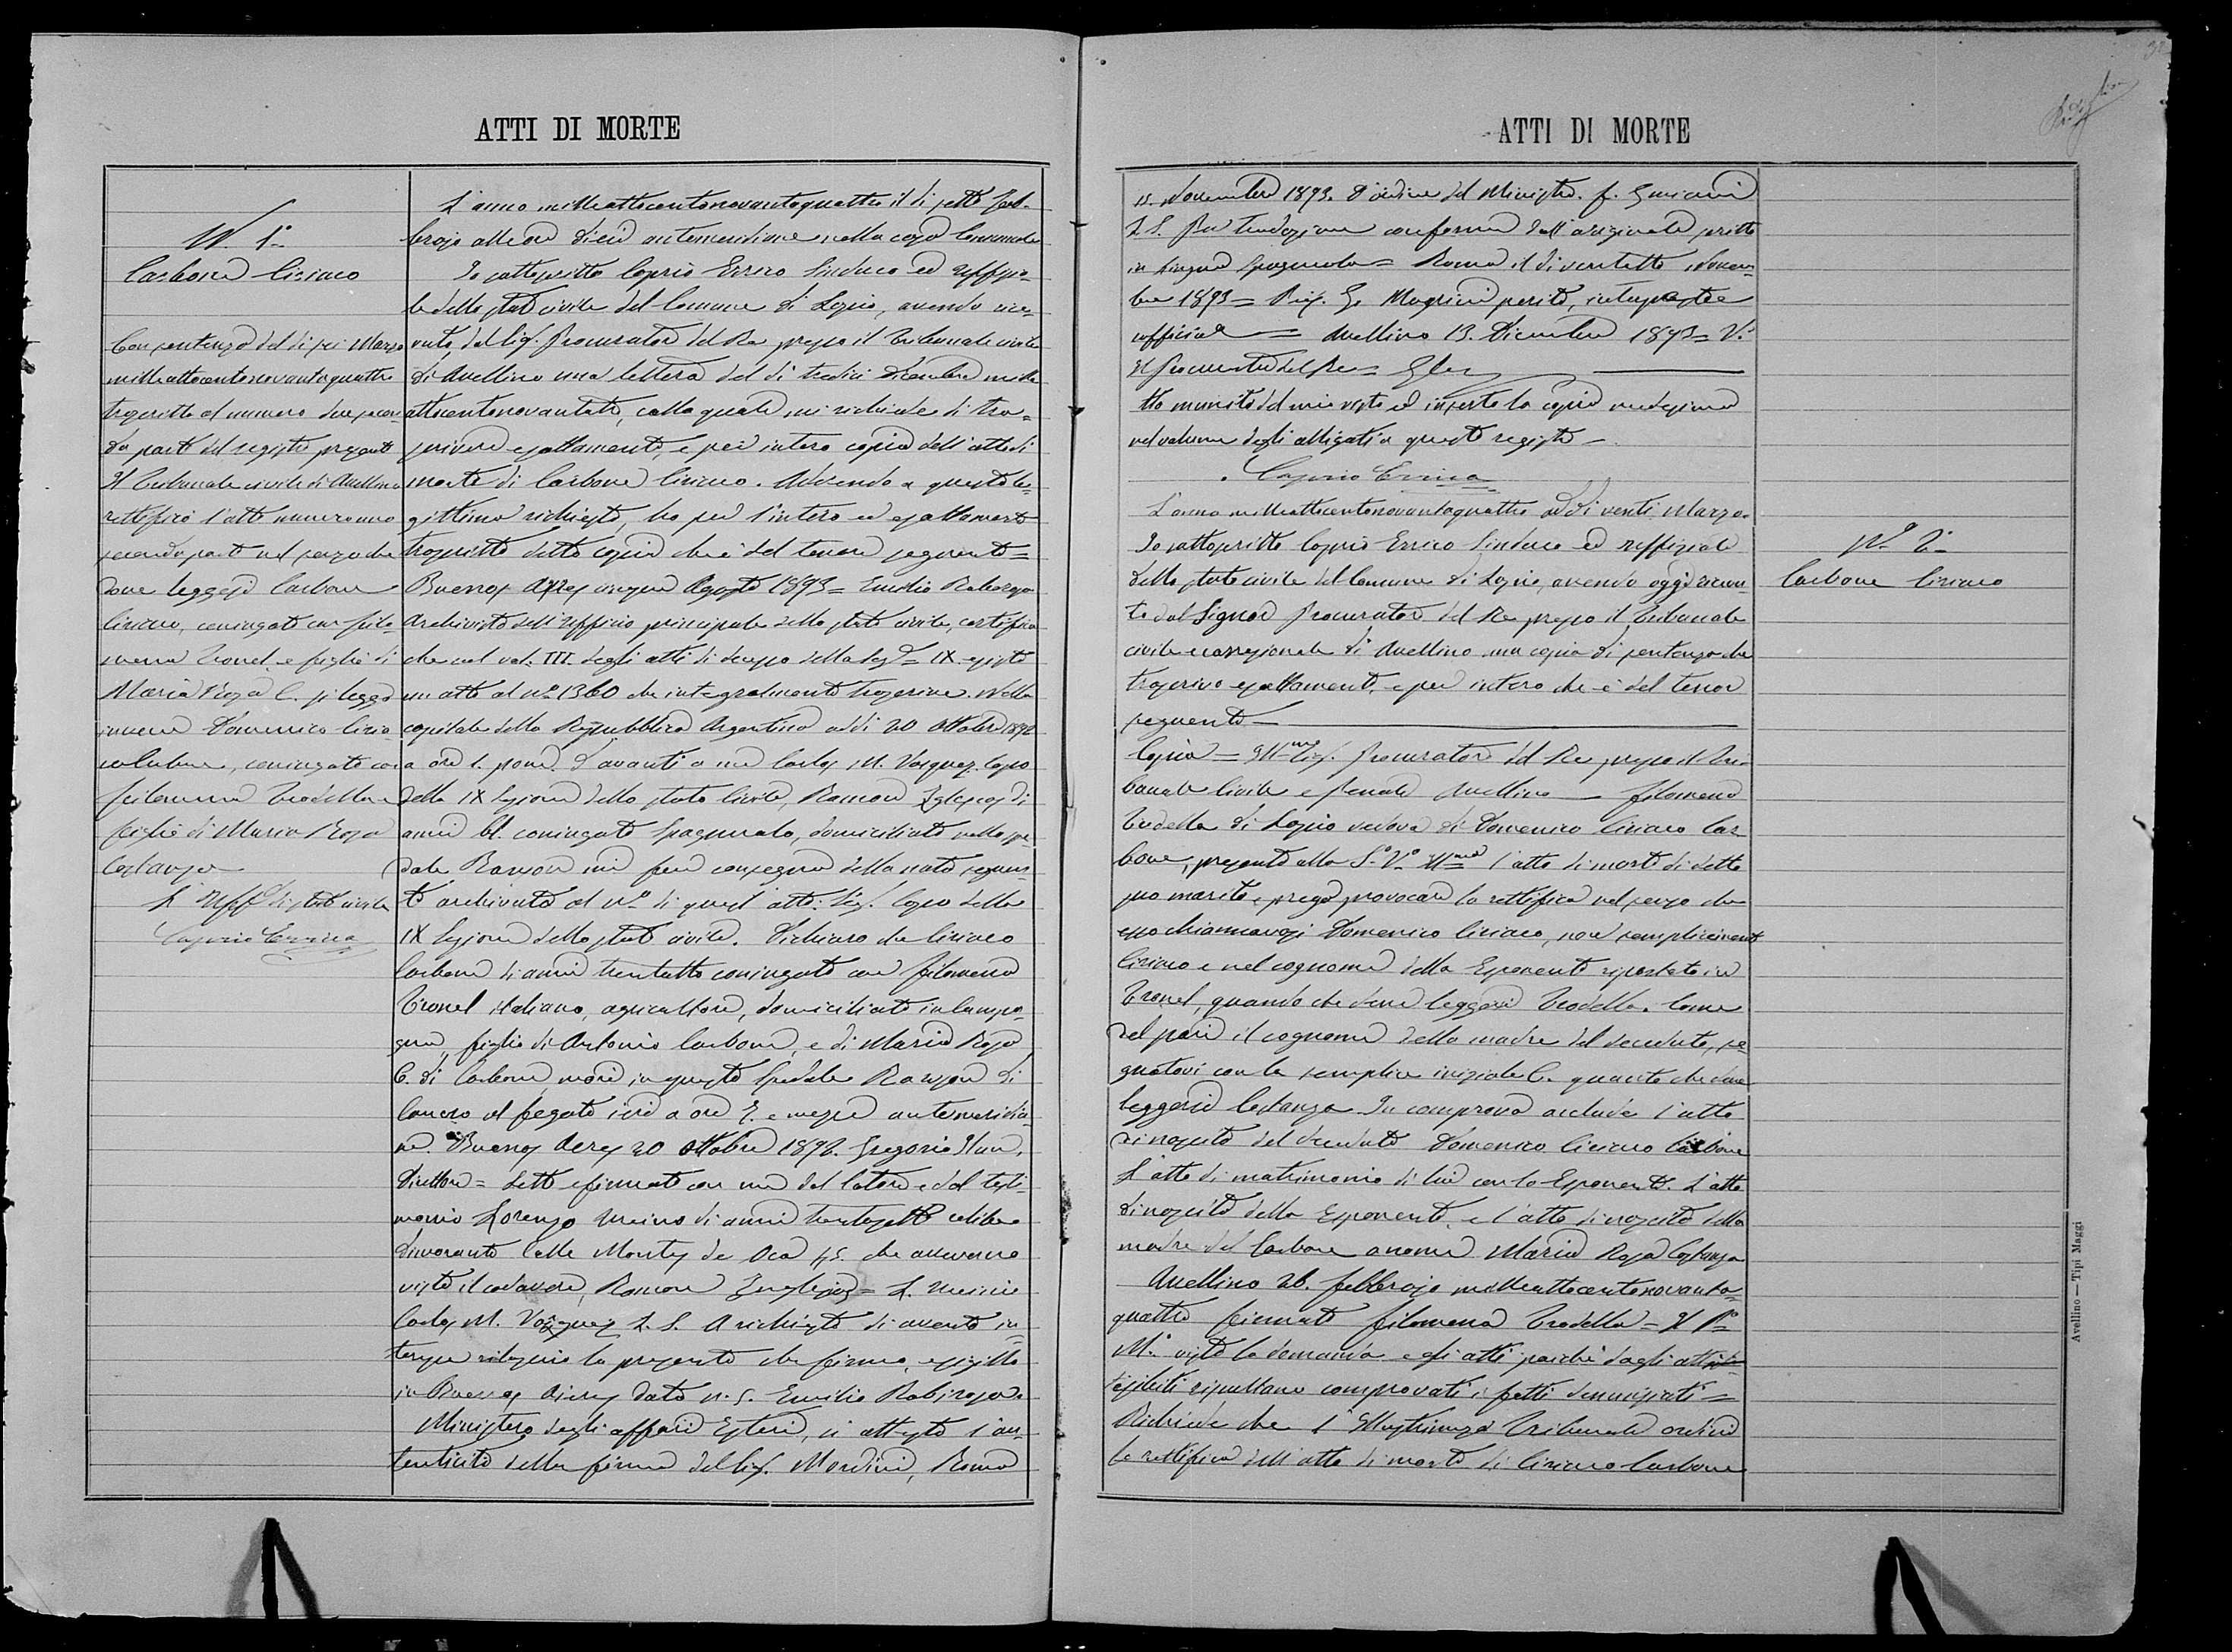 ATTI DI MORTE
N. 1.
Carbone Ciriaco
Con sentenza del dì sei Marzo
milleottocentonovantaquattro
trascritta al numero due secon-
da parte del registro presente
il Tribunale civile di Avellino
rettificò l'atto numero uno
seconda parte nel senso che
dove leggesi Carbone
Ciriaco, coniugato con Filo-
mena Tronel e figlio di
Maria Rosa C. si legga
invece Domenico Ciria-
co Carbone, coniugato con
Filomena Trodella e
figlio di Maria Rosa
Costanza
L'Uff. di stato civile
Caprio Errico
L'anno milleottocentonovantaquattro il dì sette Feb-
brajo alle ore dieci antemeridiane nella casa Comunale
Io sottoscritto Caprio Errico Sindaco ed Uffizia-
le dello stato civile del Comune di Lapio, avendo rice-
vuto dal Sig. Procuratore del Re presso il Tribunale civile
di Avellino una lettera del dì tredici Dicembre mille
ottocentonovantatre, colla quale mi richiede di tra-
scrivere esattamente e per intero copia dell'atto di
morte di Carbone Ciriaco. Aderendo a questa le-
gittima richiesta, ho per l'intero ed esattamente
trascritto detta copia che è del tenore seguente =
Buenos Ayres Agosto 1893 = Emilio
Archivista dell'Ufficio principale dello stato civile, certifica
che nel vol. III. degli atti di decesso della Sez. IX. esiste
un atto al n. 1360 che integralmente trascrive. Nella
capitale della Repubblica Argentina addì 20 Ottobre 1892
a ore 1. pom. d'avanti a me Carlos M. Vasquez Capo
della IX Sezione dello stato Civile, Ramon Iglesias di
anni 61. coniugato Spagnuolo, domiciliato nello spe-
dale Rawson mi fece consegna della nota seguen-
te archiviata al n. di quest'atto: Sig. Capo della
IX Sezione dello stato civile. Dichiaro che Ciriaco
Carbone di anni trentotto coniugato con Filomena
Tronel italiano, agricoltore, domiciliato in campa-
gna, figlio di Antonio Carbone, e di Maria Rosa
C. di Carbone morì in questo Spedale Rawson di
cancro al fegato ieri a ore 7. e mezza antemeridia-
ne. Buenos Aeres 20 Ottobre 1892. Gregorio
Direttore = Letto e firmato con me dal latore e dal testi-
monio Lorenzo di anni trentasette celibe
dimorante Calle Montes de Oca 45. che asseverano
visto il cadavere, Ramon = L.
Carlos M. Vasquez L. S. A richiesta di avente in-
teresse rilascio la presente che firmo, e sigillo
in Buenos Aires data u. s. Emilio
Ministero degli affari Esteri, si attesta l'au-
tenticità della firma del Sig. Mordini, Roma
ATTI DI MORTE
11. Novembre 1893. D'ordine del Ministro. f.
L. S. Per traduzione conforme dall'originale scritto
in lingua Spagnuola = Roma il dì ventotto Novem-
bre 1893 = Prof. G. Magrini perito, interprete
ufficiale = Avellino 13. Dicembre 1893 = V.
Il Procuratore del Re =
Ho munito del mio visto ed inserto la copia medesima
nel volume degli allegati a questo registro —
Caprio Errico
L'anno milleottocentonovantaquattro addì venti Marzo
Io sottoscritto Caprio Errico Sindaco ed Uffiziale
dello stato civile del Comune di Lapio, avendo oggi ricevu-
to dal Signor Procuratore del Re presso il Tribunale
civile e correzionale di Avellino una copia di sentenza che
trascrivo esattamente, e per intero che è del tenor
seguente —
Copia = Ill.mo Sig. Procuratore del Re presso il Tri-
bunale Civile e Penale Avellino — Filomena
Trodella di Lapio vedova di Domenico Ciriaco Car-
bone, presenta alla S. V. Ill.ma l'atto di morte di detto
suo marito, e prega provocare la rettifica nel senso che
esso chiamavasi Domenico Ciriaco, non semplicemente
Ciriaco e nel cognome della Esponente riportato in
Tronel, quando che deve leggersi Trodella. Come
del pari il cognome della madre del decedute, se-
gnatovi con la semplice iniziale C. quanto che deve
leggersi Costanza. In comprova acclude l'atto
di nascita del decedute Domenico Ciriaco Carbone
L'atto di matrimonio di lui con la Esponente. L'atto
di nascita della Esponente, e l'atto di nascita della
madre del Carbone a nome Maria Rosa Costanza
Avellino 26. Febbrajo milleottocentonovanta-
quattro firmato Filomena Trodella = Il P.
M. visto la domanda e gli atti poichè dagli atti
esibiti risultano comprovati i fatti denunziati =
Richiede che l'Illustrissimo Tribunale ordini
la rettifica dell'atto di morte di Ciriaco Carbone
N. 2.
Carbone Ciriaco
Avellino — Tipi Maggi